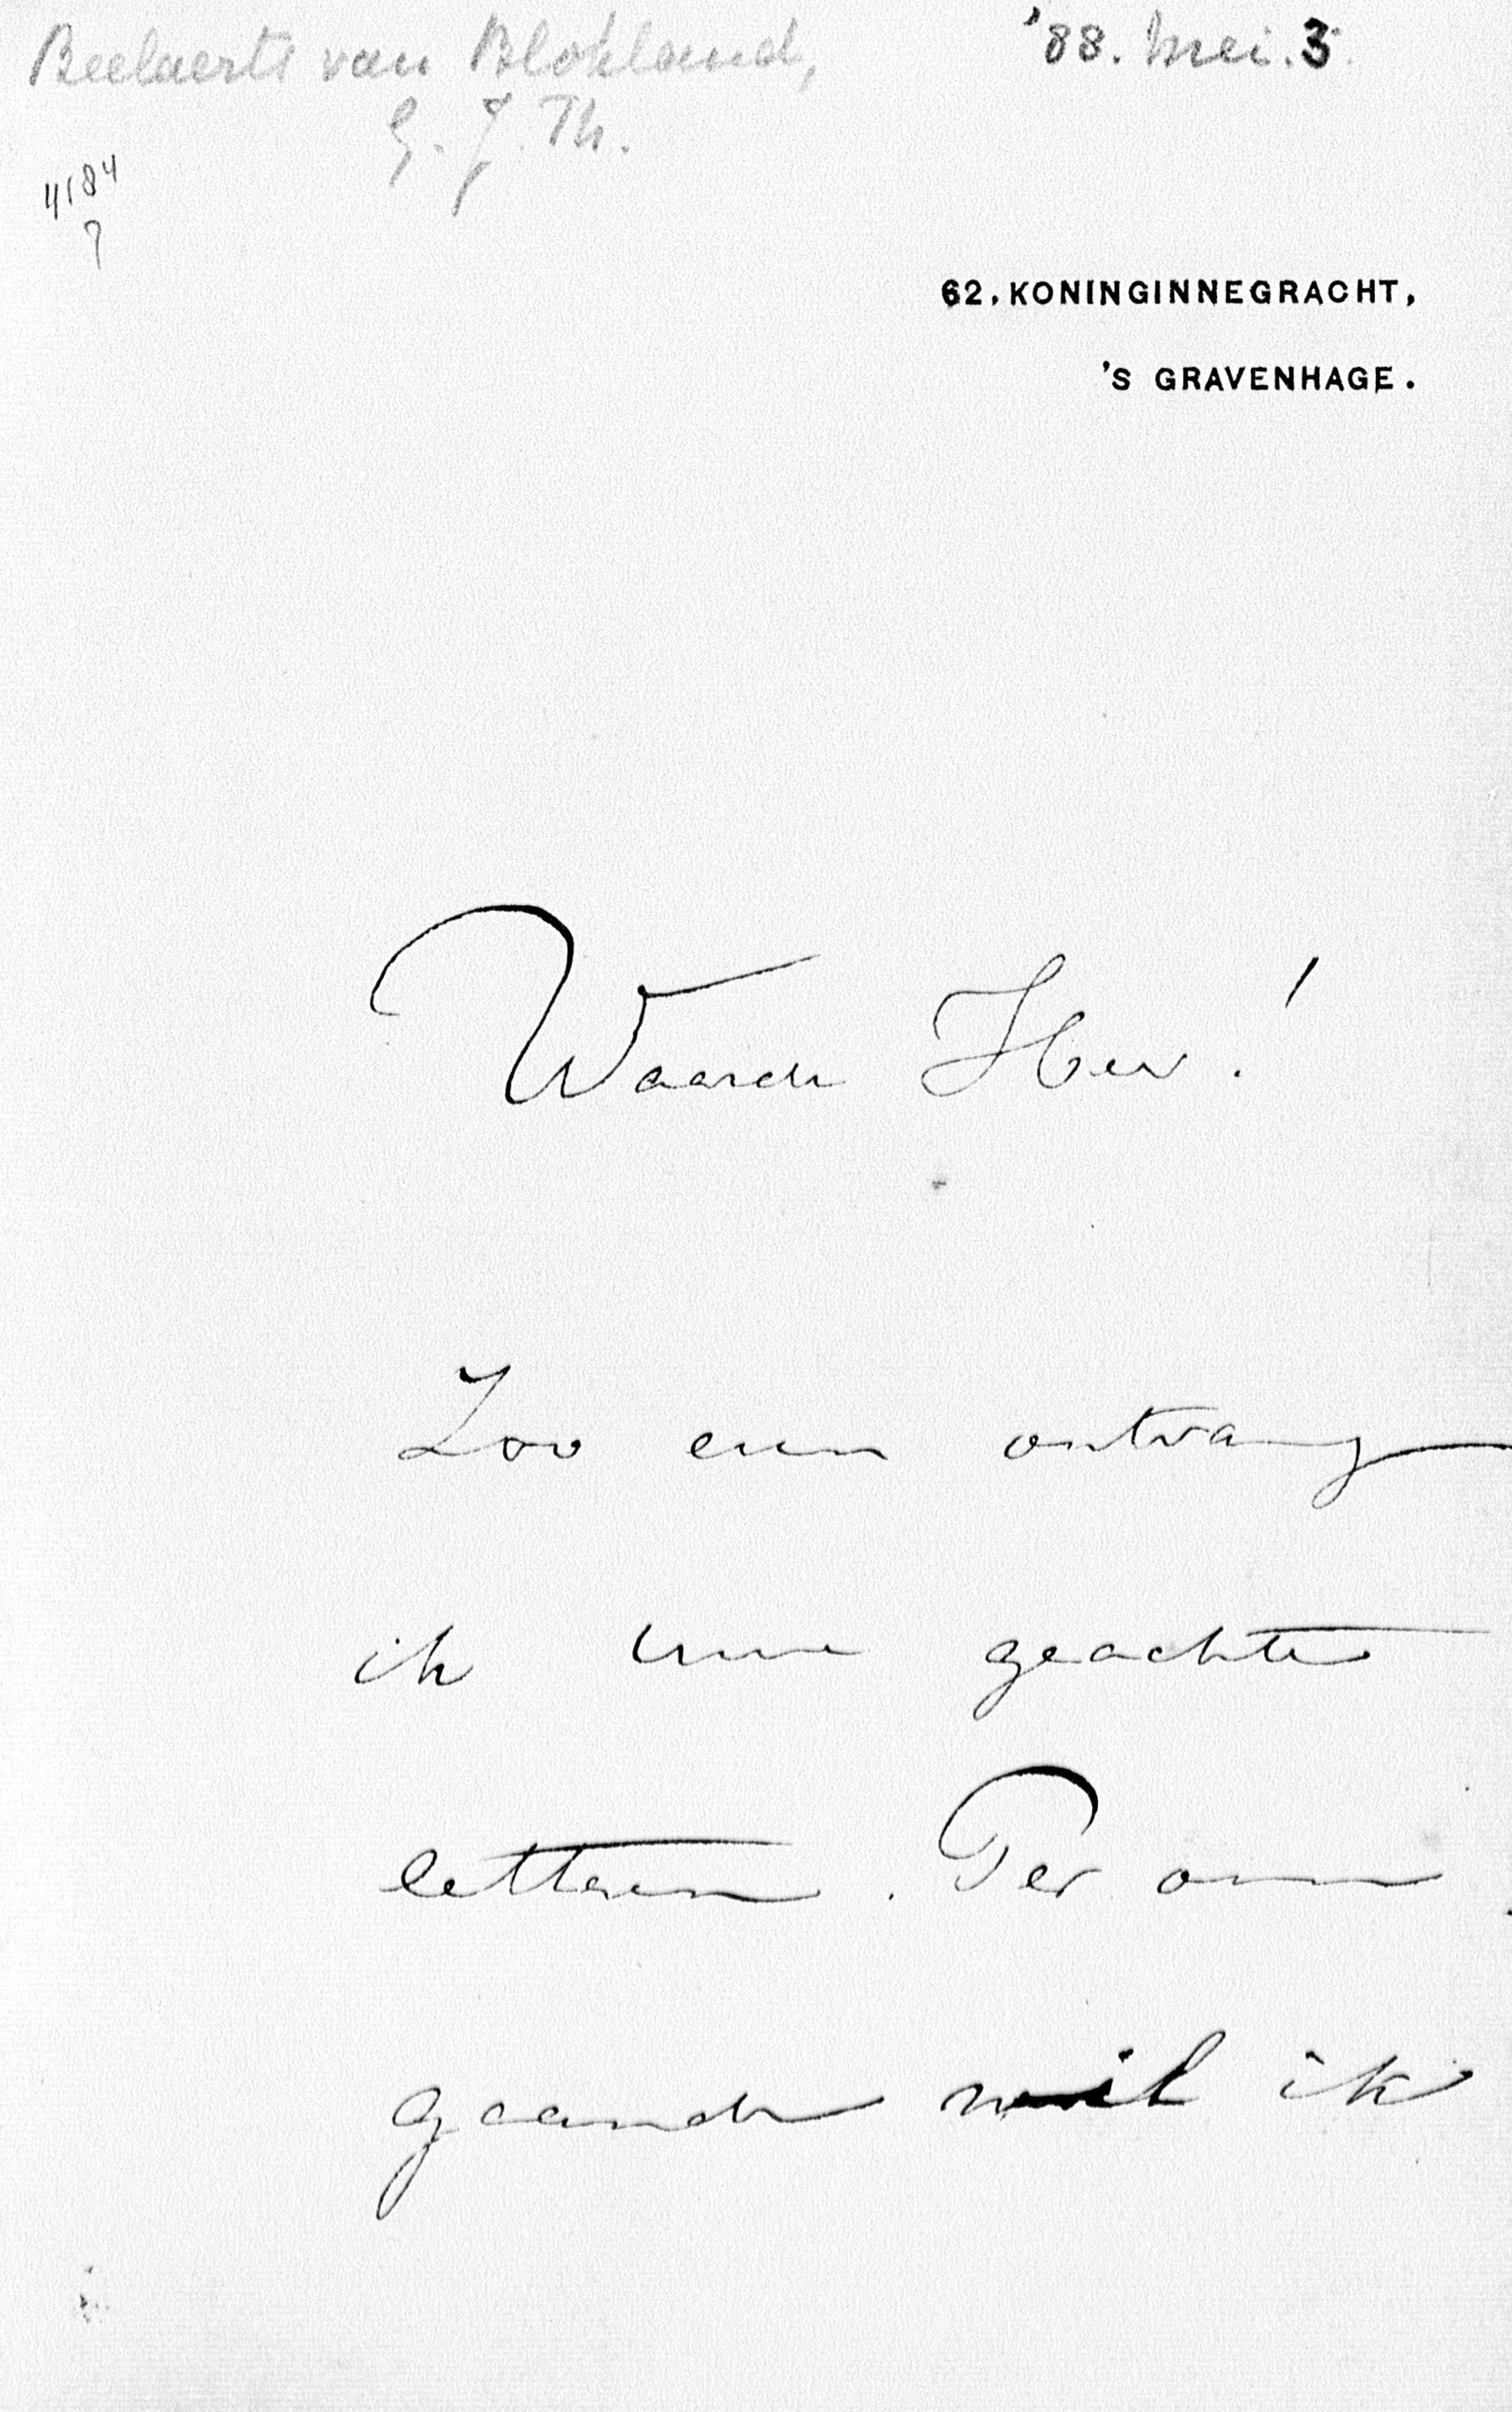 Beelaerts van Blokland,
'88. Mei. 3.
G. J. Th.
4184
?
62, KONINGINNEGRACHT,
'S GRAVENHAGE.
Waarde Heer!
Zoo even ontvang
ik uwe geachte
letteren. Per om
gaande wil ik